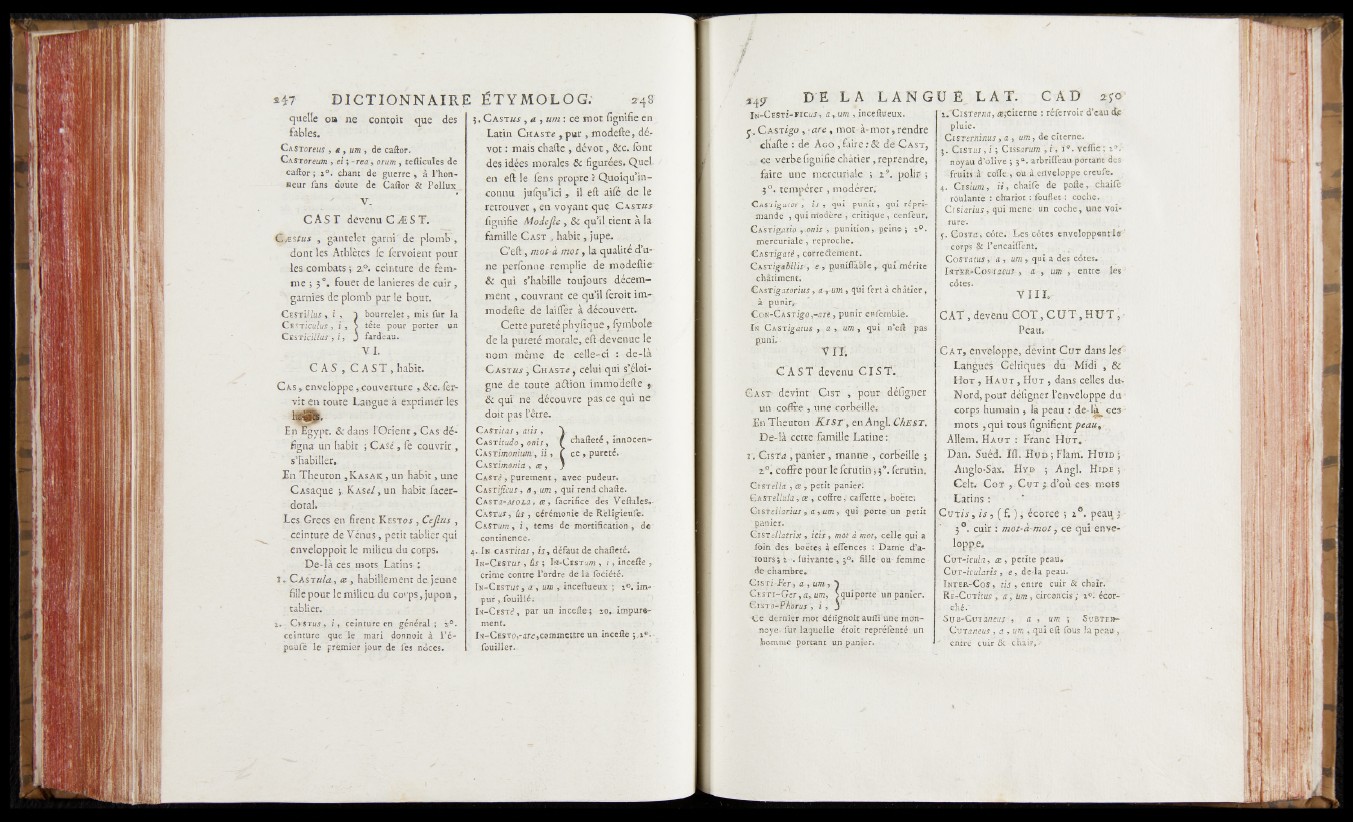 247 DICTIONNAIRE ÉTYMOLOG. 248
quelle on ne connoît que des
fables.
CASToreus, a, um, de castor.
CASToreum, ei ;-rea, orum, testicules de
castor ; 2°. chant de guerre, à l'hon-
neur sans doute de Castor & Pollux
V.
CAST devenu CÆST.
CÆstus, gantelet garni de plomb,
dont les Athlètes se servoient pour
les combats ; 2°. ceinture de fem-
me ; 3°. fouet de lanieres de cuir,
garnies de plomb par le bout.
CESTillus, i,
CESTiculus, i,
CESTicillus, i,
bourrelet, mis sur la
tête pour porter un
fardeau.
VI.
CAS, CAST, habit.
CAS, enveloppe, couverture, &c. ser-
vit en toute Langue à exprimer les
En Egypt. & dans l'Orient, CAS dé-
signa un habit ; CASé, se couvrir,
s'habiller.
En Theuton, KASAK, un habit, une
Casaque ; KASel, un habit sacer-
dotal.
Les Grecs en firent KESTOS, Cestus,
ceinture de Vénus, petit tablier qui
enveloppoit le milieu du corps.
De-là ces mots Latins :
1. CASTula, æ, habillement de jeune
fille pour le milieu du corps, jupon,
tablier.
2. CESTUS, i, ceinture en général ; 2°.
ceinture que le mari donnoit à l'é-
pouse le premier jour de ses nôces.
3. CASTus, a, um : ce mot signifie en
Latin CHASTe, pur, modeste, dé-
vot : mais chaste, dévot, &c. sont
des idées morales & figurées. Quel
en est le sens propre ? Quoiqu'in-
connu jusqu'ici, il est aisé de le
retrouver, en voyant que CASTus
signifie Modeste, & qu'il tient à la
famille CAST, habit, jupe.
C'est, mot-à mot, la qualité d'u-
ne personne remplie de modestie
& qui s'habille toujours décem-
ment, couvrant ce qu'il seroit im-
modeste de laisser à découvert.
Cette pureté physique, symbole
de la pureté morale, est devenue le
nom même de celle-ci : de-là
CASTus, CHASTe, celui qui s'éloi-
gne de toute action immodeste,
& qui ne découvre pas ce qui ne
doit pas l'être.
CASTitas, atis,
CASTitudo, onis,
CASTimonium, ii,
CASTimonia, æ,
chasteté, innocen-
ce, pureté.
CASTè, purement, avec pudeur.
CASTificus, a, um, qui rend chaste.
CASTA-MOLA, æ, sacrifice des Vestales.
CASTus, ûs, cérémonie de Religieuse.
CASTum, i, tems de mortification, de
continence.
4. IN CASTitas, is, défaut de chasteté.
IN-CESTus, ûs ; IN-CESTum, i, inceste,
crime contre l'ordre de la société.
IN-CESTus, a, um, incestueux ; 2°. im-
pur, souillé.
IN-CESTè, par un inceste ; 2o. impure-
ment.
IN-CESTo,-are,commettre un inceste ; 2°.
souiller.
249 DE LA LANGUE LAT. CAD 250
IN-CESTi-FICus, a, um, incestueux.
5. CASTigo, -are, mot-à-mot, rendre
chaste : de AGO, faire : & de CAST,
ce verbe signifie châtier, reprendre,
faire une mercuriale ; 2°. polir ;
3°. tempérer, modérer.
CASTigator, is, qui punit, qui répri-
mande, qui modère, critique, censeur.
CASTigatio, onis, punition, peine ; 2°.
mercuriale, reproche.
CASTigatè, correctement.
CASTigabilis, e, punissable, qui mérite
châtiment.
CASTigatorius, a, um, qui sert à châtier,
à punir.
CON-CASTigo,-are, punir ensemble.
IN CASTigatus, a, um, qui n'est pas
puni.
VII.
CAST devenu CIST.
CAST devint CIST, pour désigner
un coffre, une corbeille.
En Theuton KIST, en Angl. ChEST.
De-là cette famille Latine :
1. CISTa, panier, manne, corbeille ;
2°. coffre pour le scrutin ; 3°. scrutin.
CISTella, æ, petit panier.
CISTellula, æ, coffre, cassette, boëte.
CISTellarius, a, um, qui porte un petit
panier.
CISTellatrix, icis, mot à mot, celle qui a
soin des boëtes à essences : Dame d'a-
tours ; 2°. suivante, 3°. fille ou femme
de chambre.
CISTi-Fer, a, um,
CISTI-Ger, a, um,
CISTO-Phorus, i,
qui porte un panier.
Ce dernier mot désignoit aussi une mon-
noye sur laquelle étoit représenté un
homme portant un panier.
2. CISTerna, æ, citerne : réservoir d'eau de
pluie.
CISTerninus, a, um, de citerne.
3. CISTus, i ; CISSarum, i, 1°. vessie ; 2°.
noyau d'olive ; 3°. arbrisseau portant des
fruits à cosse, ou à enveloppe creuse.
4. CISium, ii, chaise de poste, chaise
roulante : chariot : soufflet : coche.
CISiarius, qui mene un coche, une voi-
ture.
5. COSTa, côte. Les côtes enveloppent le
corps & l'encaissent.
COSTatus, a, um, qui a des côtes.
INTER-COSTatus, a, um, entre les
côtes.
VIII.
CAT, devenu COT, CUT, HUT,
Peau.
CAT, enveloppe, devint CUT dans les
Langues Celtiques du Midi, &
HOT, HAUT, HUT, dans celles du
Nord, pour désigner l'enveloppe du
corps humain, la peau : de-là ces
mots, qui tous signifient peau,
Allem. HAUT : Franc HUT.
Dan. Suéd. Isl. HUD ; Flam. HUID ;
Anglo-Sax. HYD ; Angl. HIDE ;
Celt. COT, CUT ; d'où ces mots
Latins :
CUTis, is, (f.), écorce ; 2°. peau ;
3°. cuir : mot-à-mot, ce qui enve-
loppe.
CUT-icula, æ, petite peau.
CUT-icularis, e, de la peau.
INTER-CUS, tis, entre cuir & chair.
RE-CUTitus, a, um, circoncis ; 2°. écor-
ché.
SUB-CUTaneus, a, um ; SUBTER-
CUTaneus, a, um, qui est sous la peau,
entre cuir & chair.